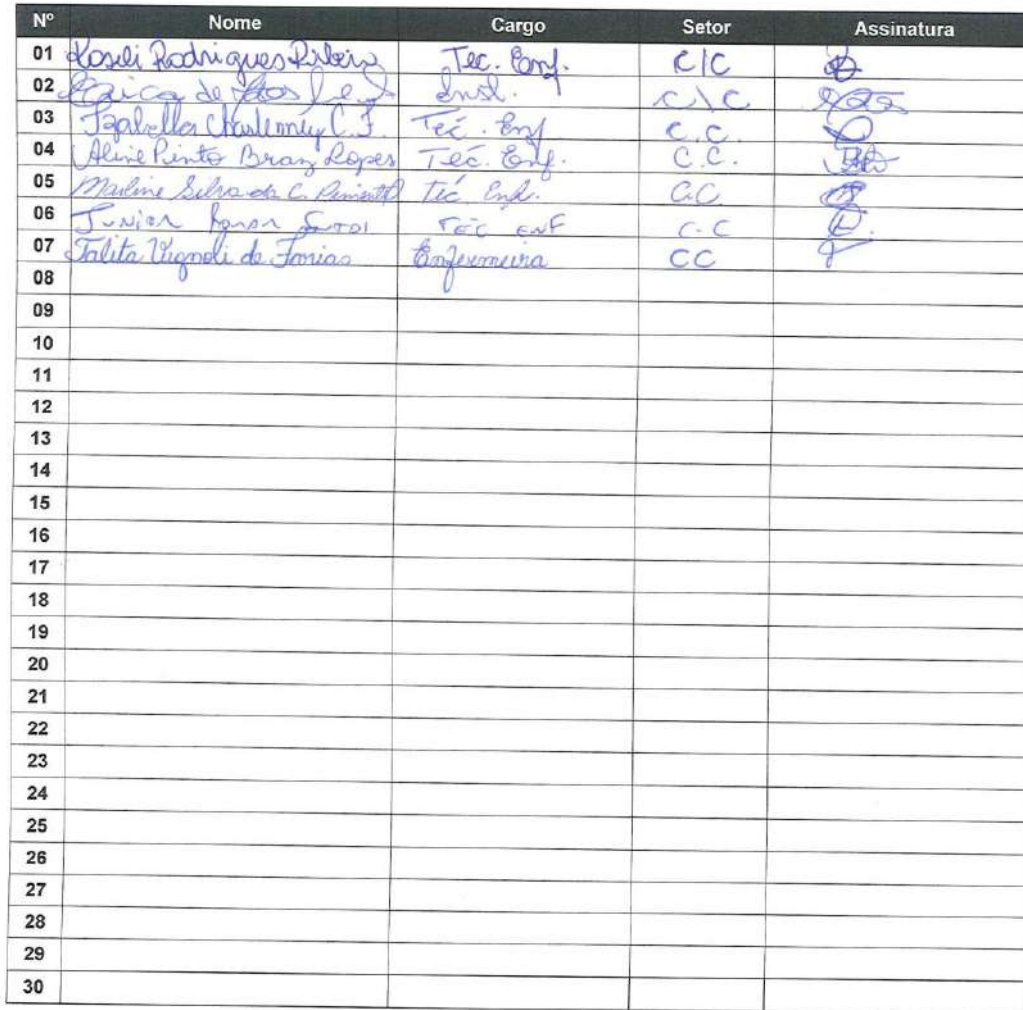 Nº Nome Cargo Setor Assinatura
01 Roseli Rodrigues Ribeiro Tec. Enf. C/C
02 de Inst. C\C
03 Izabella C. F. Tec. Enf C.C.
04 Aline Pinto Braz Lopes Téc. Enf. C.C.
05 Marline Silva da C. Pimentel Téc. Enf. C.C
06 Junior TEC ENF C.C
07 Talita Vignoli de Farias Enfermeira CC
08
09
10
11
12
13
14
15
16
17
18
19
20
21
22
23
24
25
26
27
28
29
30